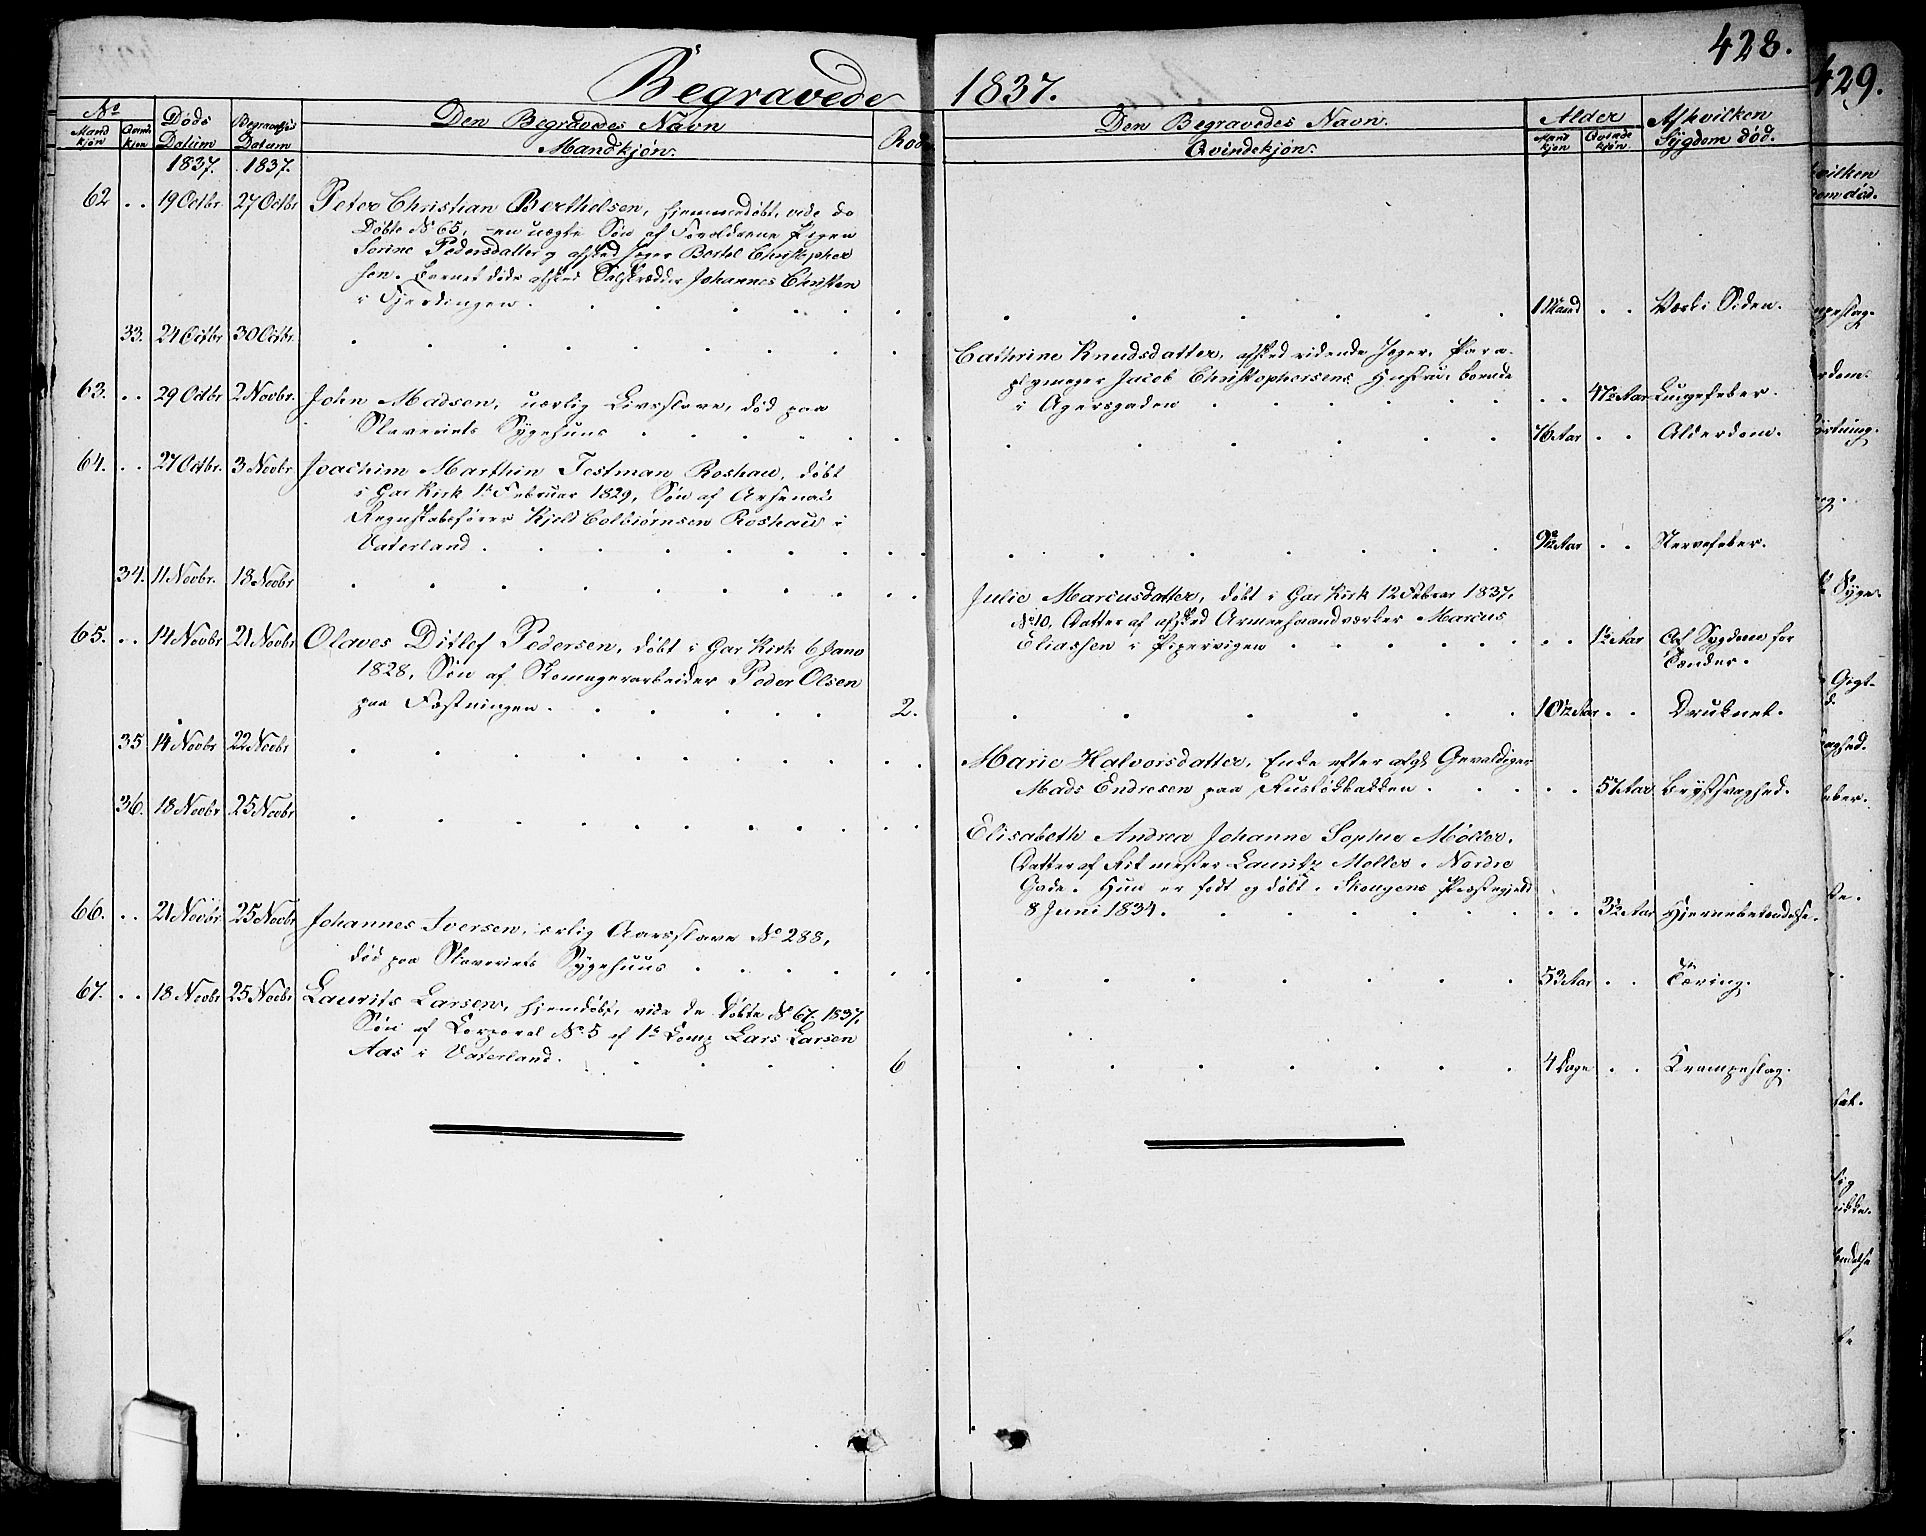 428.
429.
Begravede 1837.
No
Mandkjøn
Qvindekjøn
Døds Datum
Begravelses Datum
Den Begravedes Navn
Mandkjøn.
Rode
Den Begravedes Navn.
Qvindekjøn.
Alder
Mandkjøn
Qvindekjøn.
Af hvilken Sygdom død.
1837. 1837.
62 . . 19 Octbr 27 Octbr Peter Christian Berthelsen, hjemmedøbt, vide de
Døbte No 65, en uægte Søn af Forældrene Pigen
Sorine Pedersdatter og afsked Jeger Bertel Christopher
sen. Barnet døde afsked Johannes Christen
i Fjerdingen . 1 Maand . . Værk i Siden.
33. 24 Octbr 30 Octbr.
Cathrine Knudsdatter, afsked ridende Jeger, Para-
plymager Jacob Christophersens Hustru, boende
i Agersgaden . . 47 Aar Lungefeber.
63. . . 29 Octbr 2 Novbr. John Madsen, uærlig Livsslave, død paa
Slaveriets Sygehuus . 76 Aar . . Alderdom.
64. . . 27 Octbr. 3 Novbr Joachim Marthin Testman Roshau, døbt
i Gar Kirk 1 Februar 1829, Søn af Arsenals
Regnskabsfører Kjeld Colbiørnsen Roshauw i
Vaterland . 9 1/2 Aar . . Nervefeber.
34. 11 Novbr. 18 Novbr
Julie Marcusdatter, døbt i Gar Kirk 12 Febrar 1837.
No 10, Datter af afsked Armeehaandværker Marcus
Eliassen i Pipervigen . . . 1/2 Aar Af Sygdom for
Tænder.
65. . . 14 Novbr 21 Novbr Olaves Ditlef Pedersen, døbt i Gar Kirk 6 Janv
1828, Søn af Skomagerarbeider Peder Olsen
paa Fæstningen . 2. 10 1/2 Aar . . Druknet.
35 14 Novbr 22 Novbr
Marie Halvorsdatter, Enke efter afgk Gevaldiger
Mads Endresen paa Ruseløkbakken . . . 57 Aar Brystsvaghed.
36. 18 Novbr 25 Novbr
Elisabeth Andrea Johanne Sophie Møller,
Datter af Ritmester Lauritz Møller i Nordre
Gade. Hun er født og døbt i Skougens Præstegjeld
8 Juni 1834 . . . 3 1/2 Aar Hjernebetændelse.
66. . . 21 Novbr 25 Novbr Johannes Iversen, ærlig Aarsslave No 288,
død paa Slaveriets Sygehuus . 53 Aar . . Tæring.
67. . . 18 Novbr 25 Novbr Laurits Larsen, hjemdøbt, vide de Døbte No 67. 1837,
Søn af Corporal No 5 af 1 Comp Lars Larsen
Aas i Vaterland . 6 4 Dage . . Krampeslag.